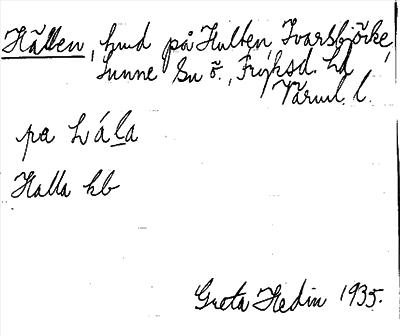 Hällen, hmd på Hulten, Ivarsbjörke,
Sunne Sn ö., Fryksd. hd
Värml. l.
pa hála
Halla kb
Greta Hedin 1935.